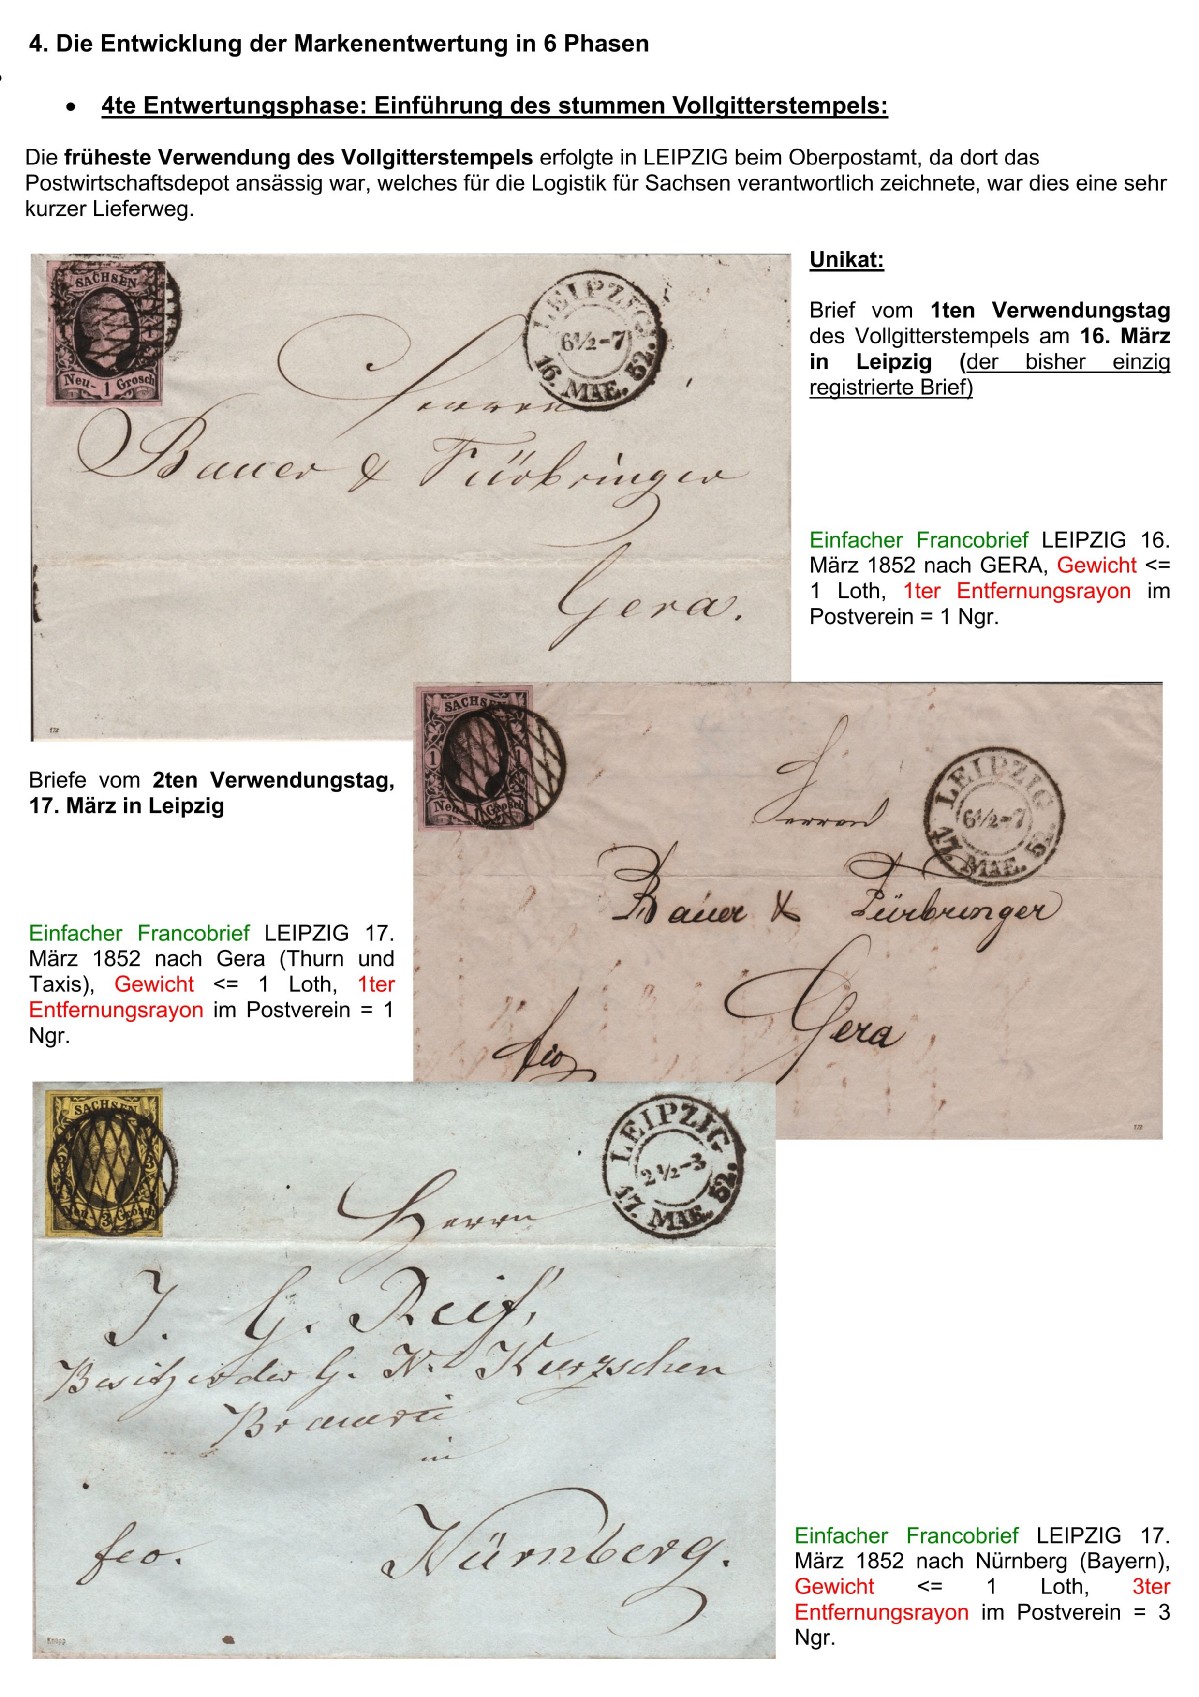 4. Die Entwicklung der Markenentwertung in 6 Phasen
• 4te Entwertungsphase: Einführung des stummen Vollgitterstempels:
Die früheste Verwendung des Vollgitterstempels erfolgte in LEIPZIG beim Oberpostamt, da dort das
Postwirtschaftsdepot ansässig war, welches für die Logistik für Sachsen verantwortlich zeichnete, war dies eine sehr
kurzer Lieferweg.
SACHSEN
Neu- 1 Grosch
LEIPZIG
6½-7
16. MAE. 52.
Herren
Bauer & Fürbringer
Gera.
Unikat:
Brief vom 1ten Verwendungstag
des Vollgitterstempels am 16. März
in Leipzig (der bisher einzig
registrierte Brief)
Einfacher Francobrief LEIPZIG 16.
März 1852 nach GERA, Gewicht <=
1 Loth, 1ter Entfernungsrayon im
Postverein = 1 Ngr.
SACHSEN
1 1
Neu- 1 Grosch
LEIPZIG
6½-7
17. MAE. 52.
Herren
Bauer & Fürbringer
Gera
fco
Briefe vom 2ten Verwendungstag,
17. März in Leipzig
Einfacher Francobrief LEIPZIG 17.
März 1852 nach Gera (Thurn und
Taxis), Gewicht <= 1 Loth, 1ter
Entfernungsrayon im Postverein = 1
Ngr.
SACHSEN
3 3
Neu- 3 Grosch
LEIPZIG
2½-3
17. MAE. 52.
Herrn
J. G. Reif,
Besitzer der G. N. Kurzschen
Brauerei
in
fco. Nürnberg.
Einfacher Francobrief LEIPZIG 17.
März 1852 nach Nürnberg (Bayern),
Gewicht <= 1 Loth, 3ter
Entfernungsrayon im Postverein = 3
Ngr.